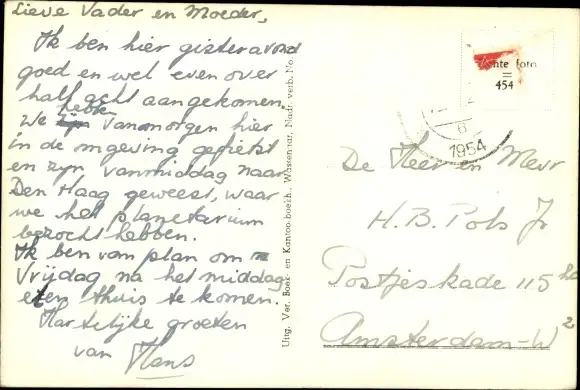 Lieve Vader en Moeder,
Ik ben hier gisteravond
goed en wel even over
half acht aangekomen.
We hebben vanmorgen hier
in de omgeving gefietst
en zijn vanmiddag naar
Den Haag geweest, waar
we het planetarium
bezocht hebben.
Ik ben van plan om
Vrijdag na het middag
eten thuis te komen.
Hartelijke groeten
van Hans
Uitg. Ver. Boek- en Kantoorboekh., Wassenaar, Nadr. verb. No.
echte foto
=
454
6
1954
De Heer en Mevr
H.B. Pols Jr
Postjeskade 115 hs
Amsterdam-W²